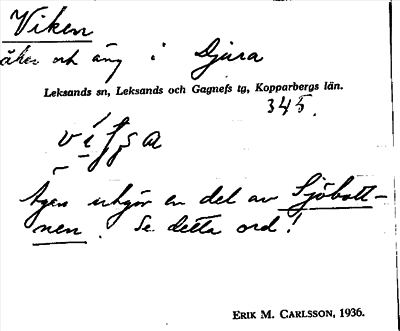 Viken
åker och äng i Djura
Leksands sn, Leksands och Gagnefs tg, Kopparbergs län.
345.
Ägen utgör en del av Sjöbott-
nen. Se detta ord!
ERIK M. CARLSSON, 1936.